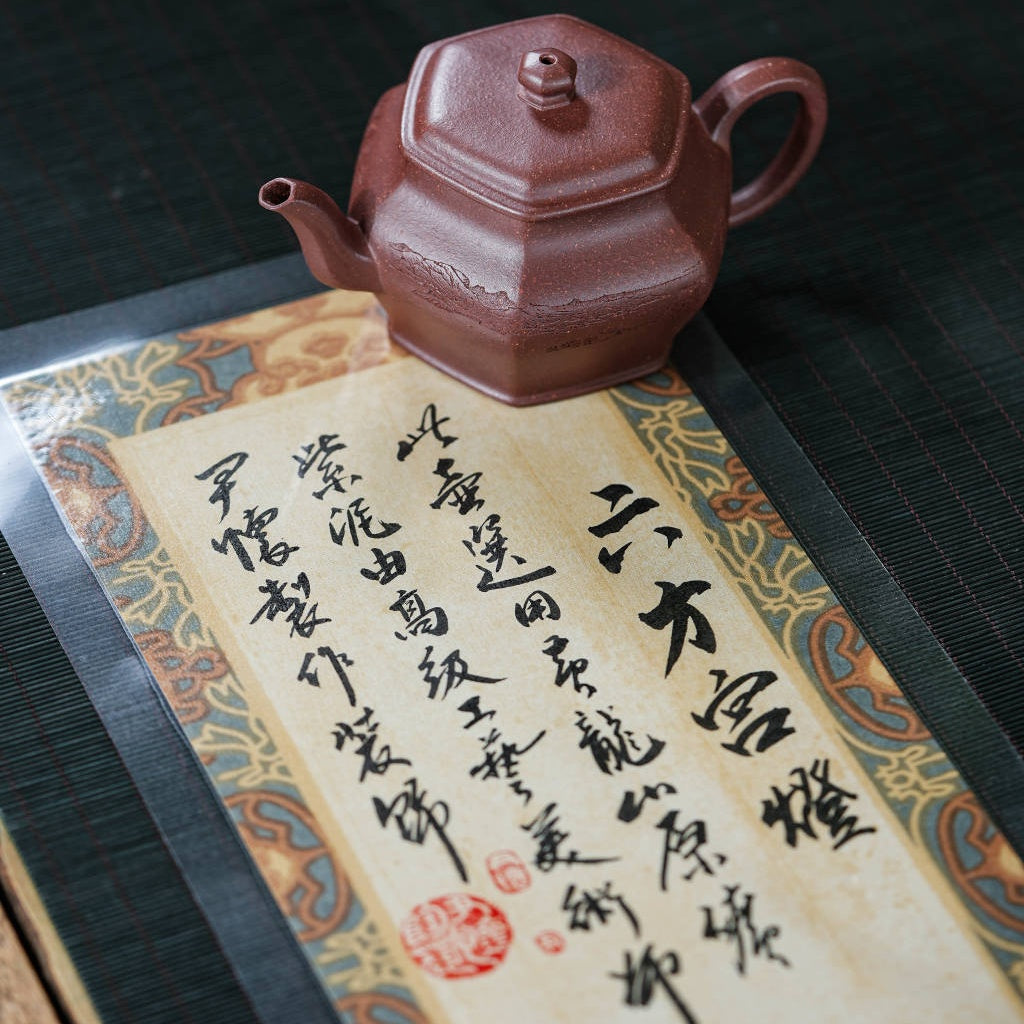 六方宮燈
此壺選用黃龍山原礦
紫泥由高級工藝美術師
尹懷製作裝飾